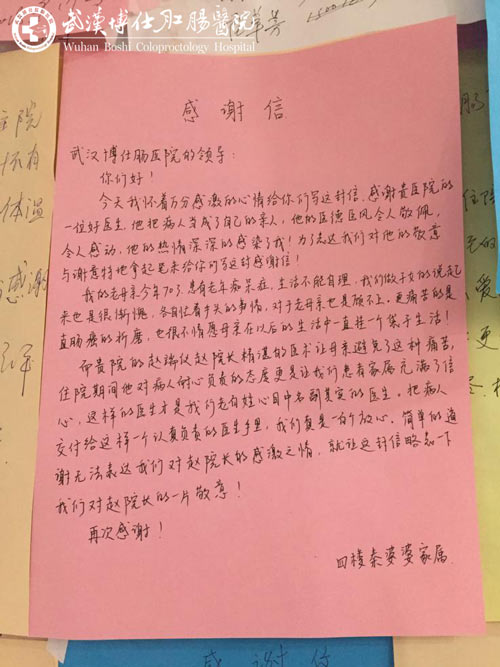 武漢博仕肛腸醫院
Wuhan Boshi Coloproctology Hospital
感谢信
武汉博仕肠医院的领导：
你们好！
今天我怀着万分感激的心情给你们写这封信，感谢贵医院的
一位好医生，他把病人当成了自己的亲人，他的医德医风令人敬佩，
令人感动，他的热情深深的感染了我！为了表达我们对他的敬意
与谢意特地拿起笔来给你们写这封感谢信！
我的老母亲今年70了患有老年痴呆症，生活不能自理，我们做子女的说起
来也是很惭愧，各自忙着手头的事情，对于老母亲也是顾不上。更痛苦的是
直肠癌的折磨，也很不情愿母亲在以后的生活中一直挂一个袋子生活！
而贵院的赵端仪赵院长精湛的医术让母亲避免了这种痛苦，
住院期间他对病人耐心负责的态度更是让我们患者家属充满了信
心，这样的医生才是我们老百姓心目中名副其实的医生。把病人
交付给这样一个认真负责的医生手里，我们真是一百个放心，简单的道
谢无法表达我们对赵院长的感激之情，就让这封信略表一下
我们对赵院长的一片敬意！
再次感谢！
四楼秦婆婆家属
住院
怀有
体温
感谢
感谢信